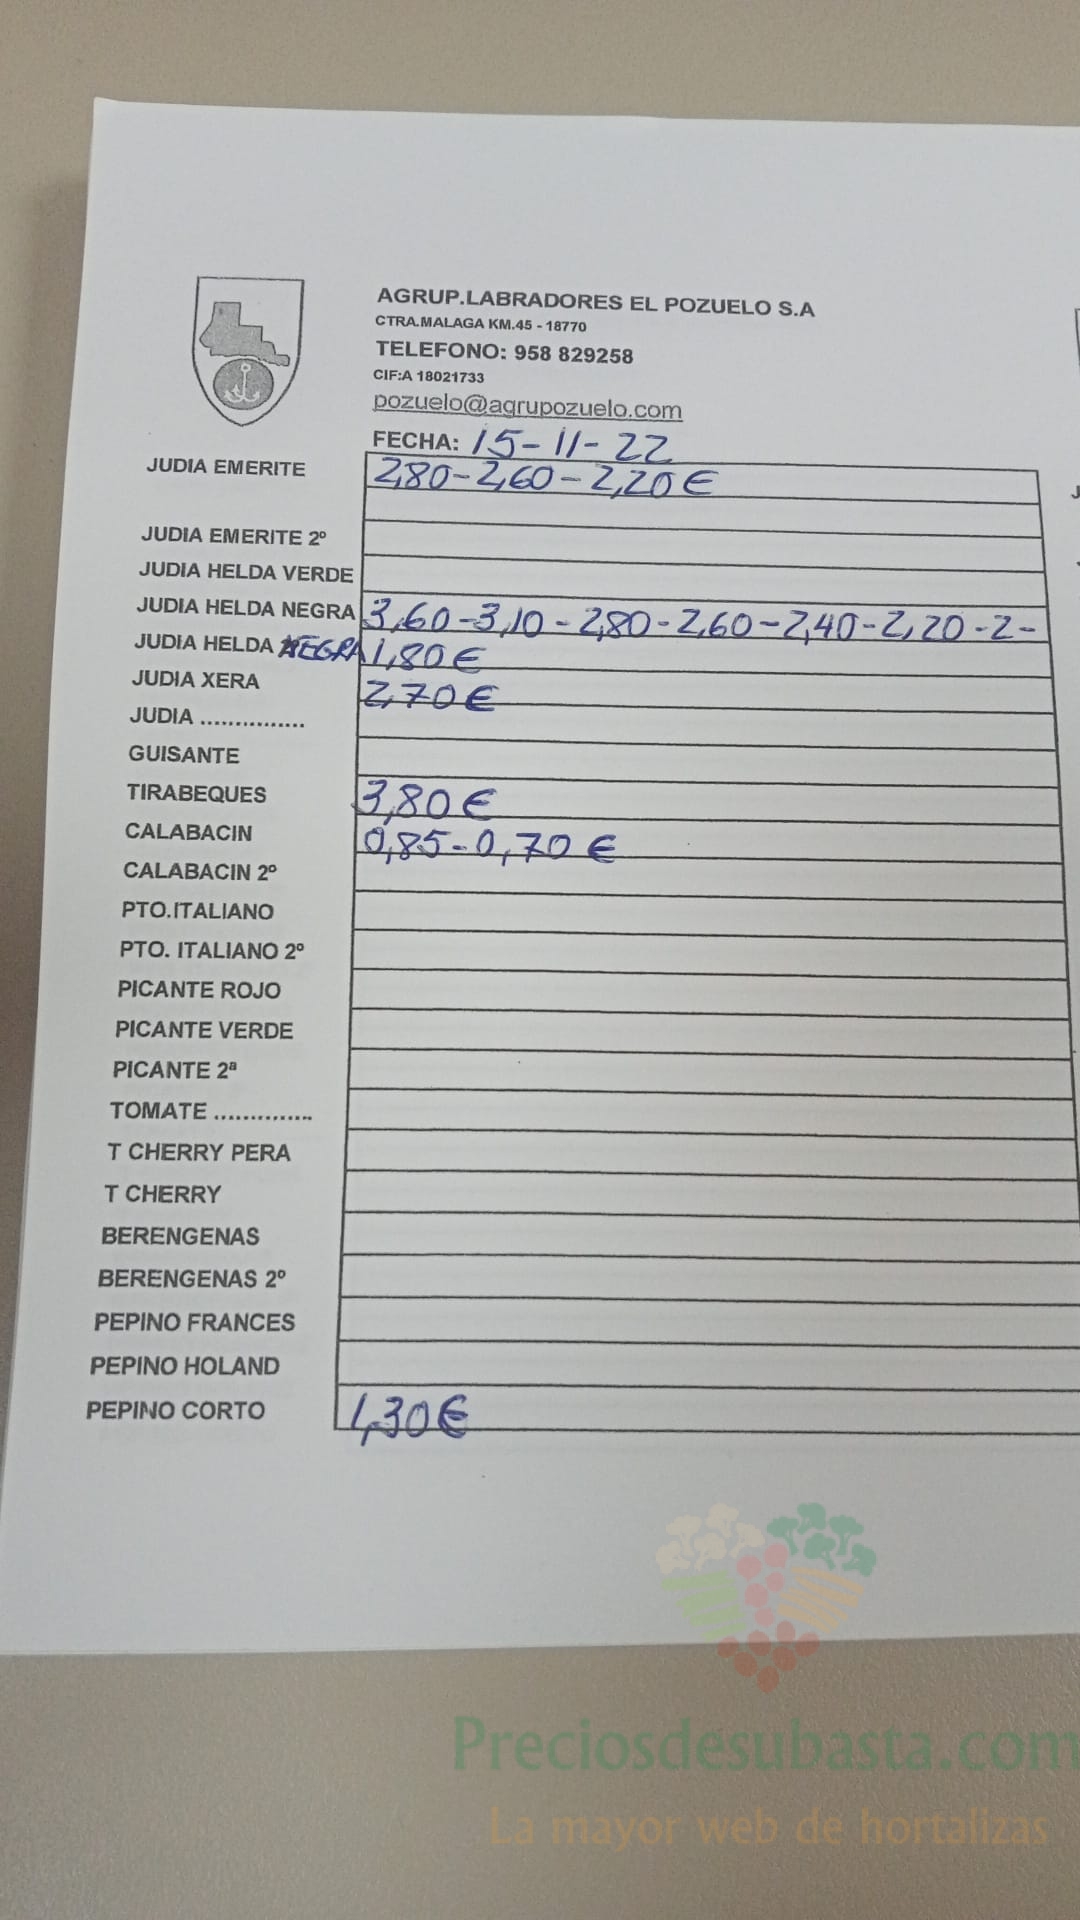 AGRUP.LABRADORES EL POZUELO S.A
CTRA.MALAGA KM.45 - 18770
TELEFONO: 958 829258
CIF:A 18021733
pozuelo@agrupozuelo.com
FECHA: 15-11-22
JUDIA EMERITE 2,80-2,60-2,20€
JUDIA EMERITE 2º
JUDIA HELDA VERDE
JUDIA HELDA NEGRA 3,60-3,10-2,80-2,60-2,40-2,20-2-
JUDIA HELDA NEGRA 1,80€
JUDIA XERA 2,70€
JUDIA ...............
GUISANTE
TIRABEQUES 3,80€
CALABACIN 0,85-0,70€
CALABACIN 2º
PTO.ITALIANO
PTO. ITALIANO 2º
PICANTE ROJO
PICANTE VERDE
PICANTE 2ª
TOMATE ..............
T CHERRY PERA
T CHERRY
BERENGENAS
BERENGENAS 2º
PEPINO FRANCES
PEPINO HOLAND
PEPINO CORTO 1,30€
Preciosdesubasta.com
La mayor web de hortalizas